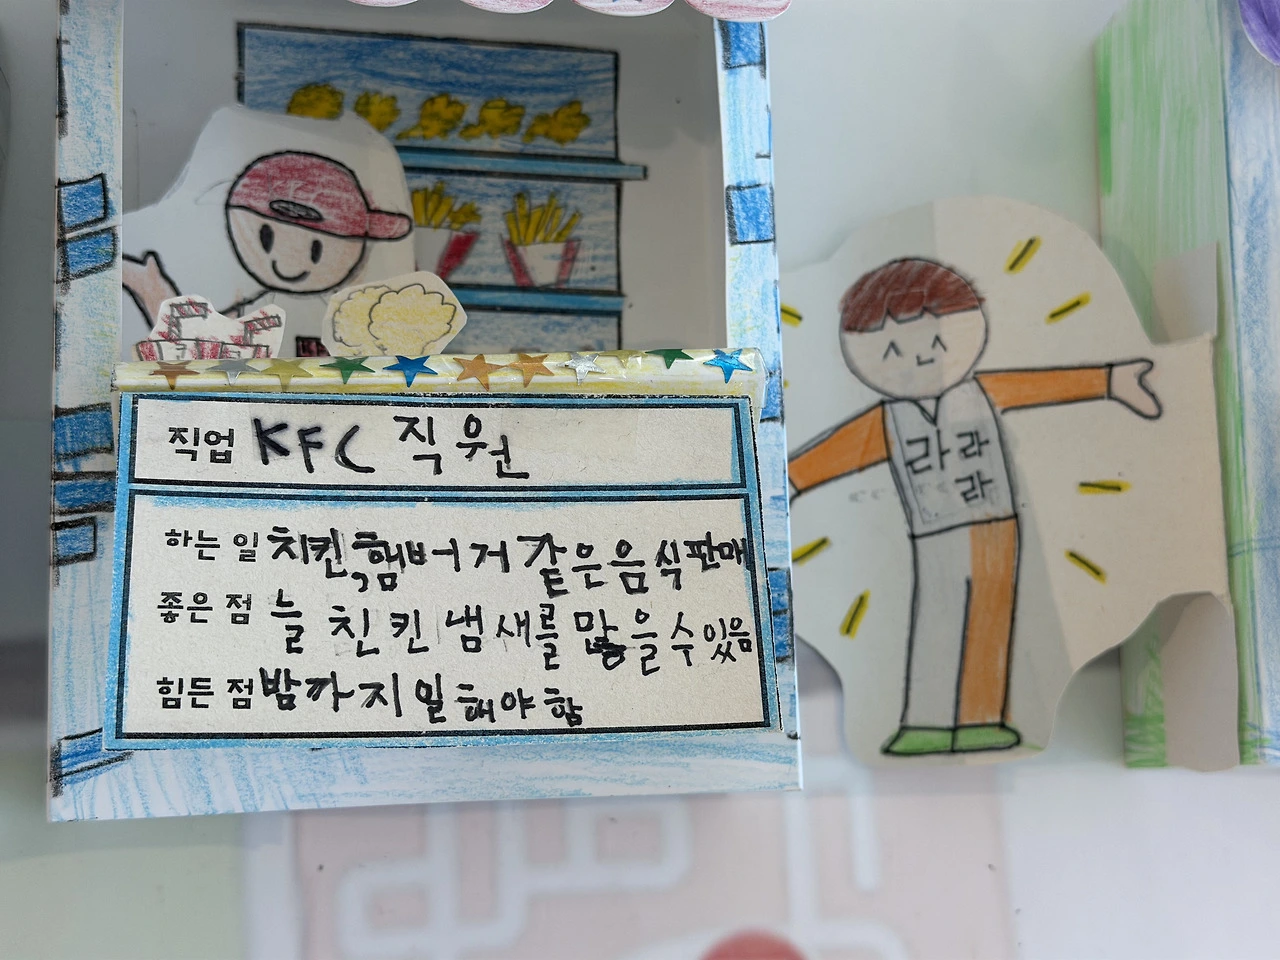 직업 KFC 직원
하는 일 치킨,햄버거 같은 음식 판매
좋은 점 늘 친킨 냄새를 맑을 수 있음
힘든 점 밤까지 일해야 함
라라
라